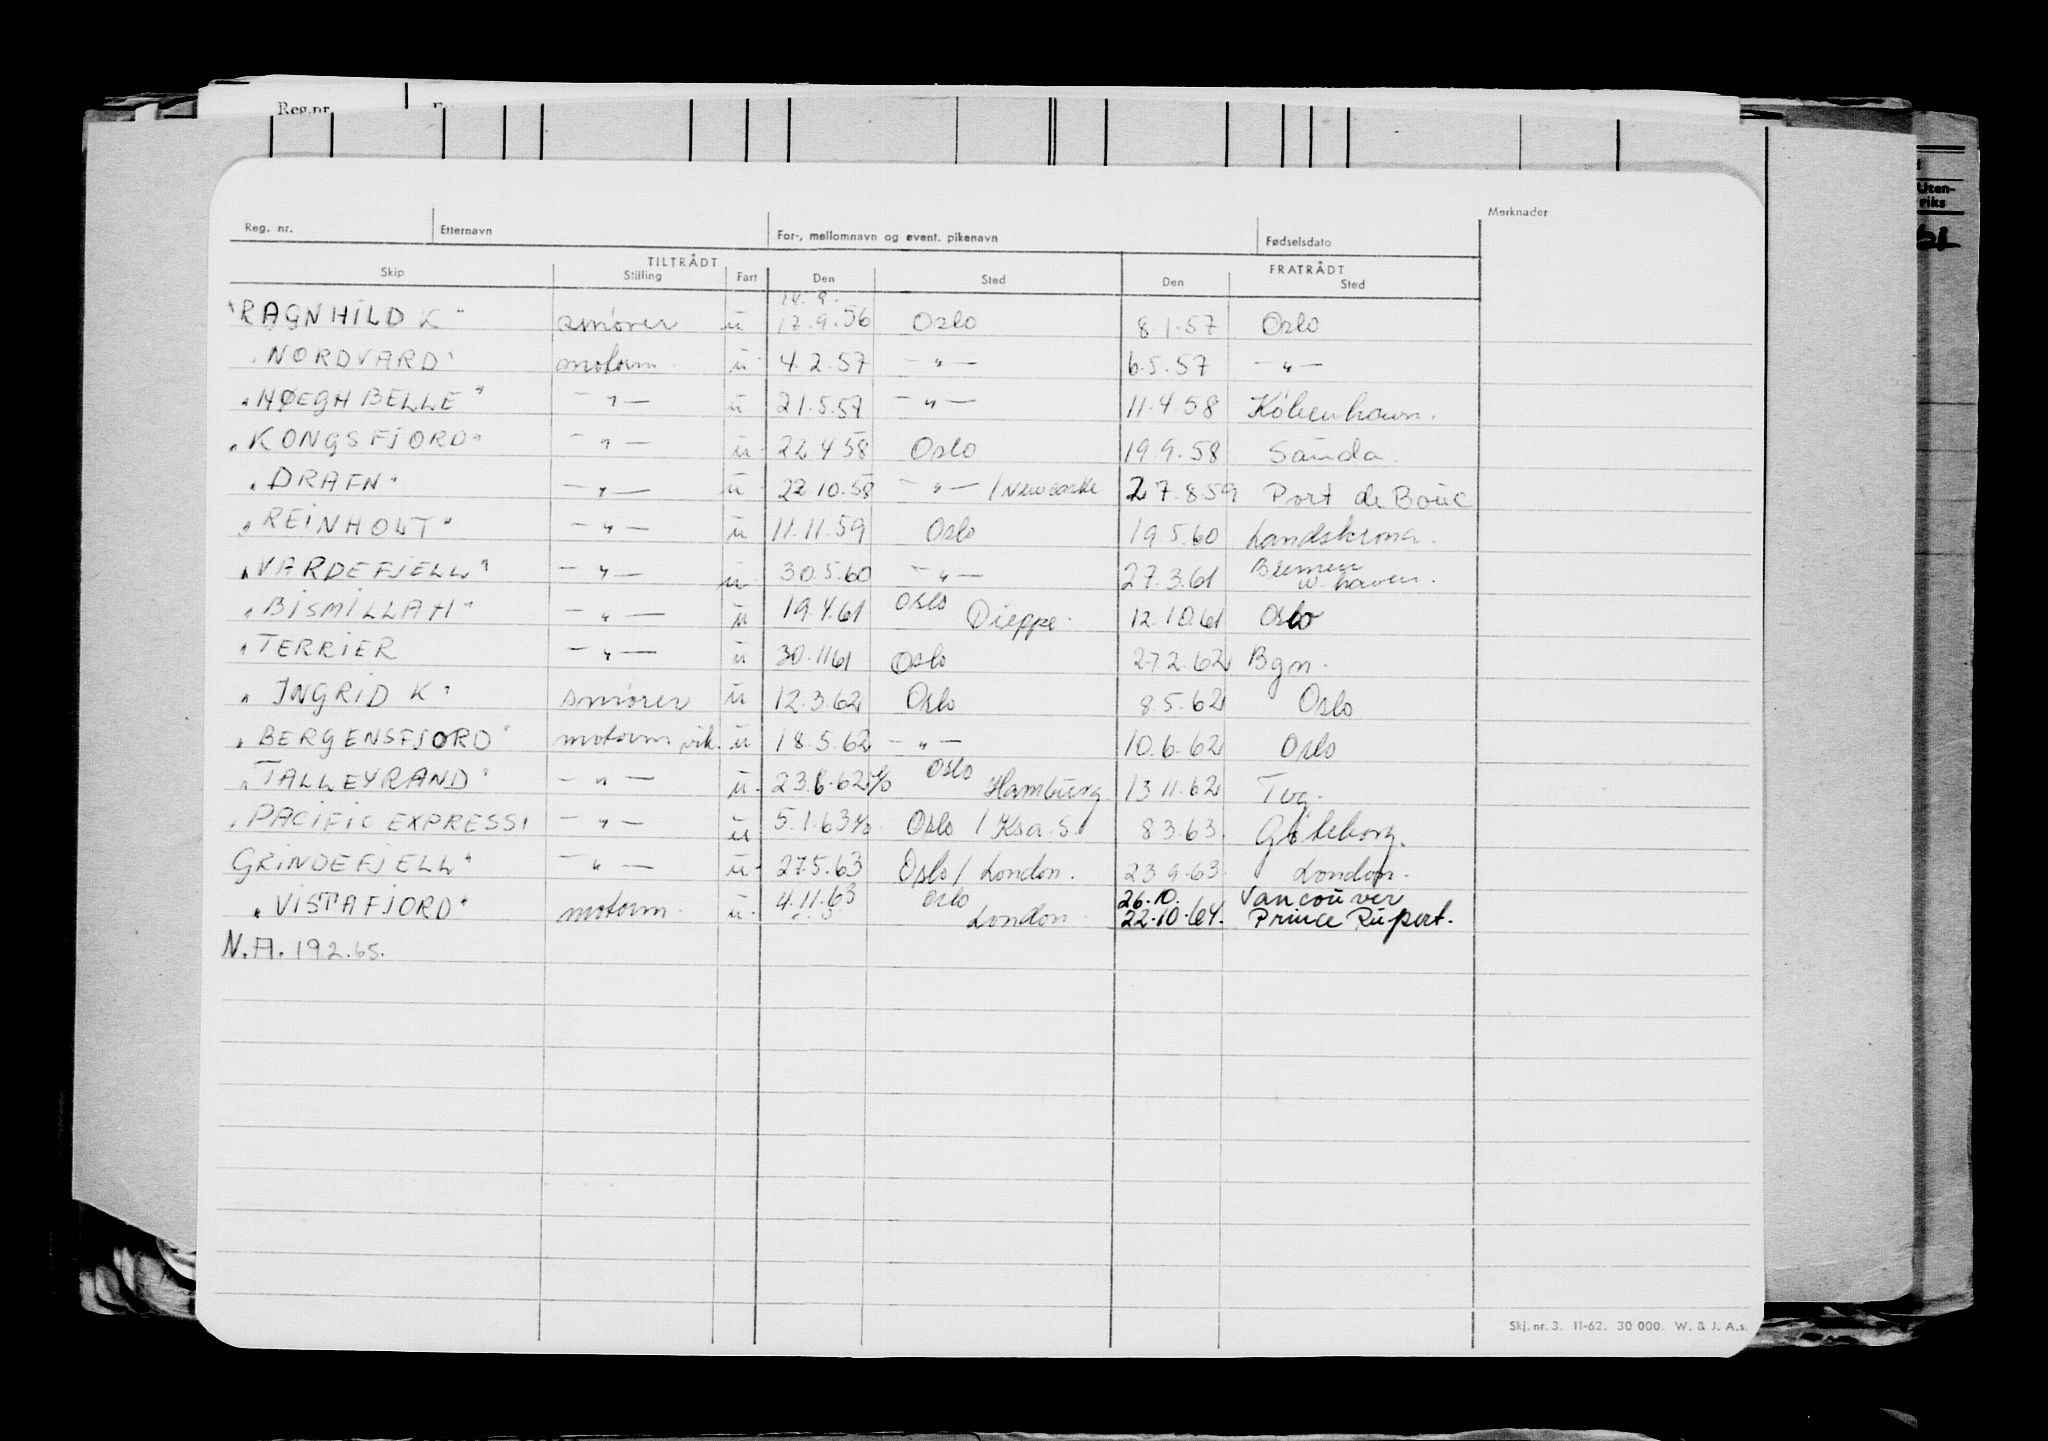 Reg.nr.
Uten-
riks
Merknader
Reg. nr. Etternavn For-, mellomnavn og event. pikenavn Fødselsdato
TILTRÅDT FRATRÅDT
Skip Stilling Fart Den Sted Den Sted
"RAGNHILD K" smører u 17.9.56 Oslo 8.1.57 Oslo
"NORDVARD" motorm. u 4.2.57 — " — 6.5.57 — " —
"HØEGH BELLE" — " — u 21.5.57 — " — 11.4.58 København.
"KONGSFJORD" — " — u 22.4.58 Oslo 19.9.58 Sauda.
"DRAFN" — " — u 22.10.58 — " — / Newcastle 27.8.59 Port de Bouc
"REINHOLT" — " — u 11.11.59 Oslo 19.5.60 Landskrona.
"VARDEFJELL" — " — u 30.5.60 — " — 27.3.61 Bremen
w. haven.
"BISMILLAH" — " — u 19.4.61 Oslo Dieppe. 12.10.61 Oslo
"TERRIER — " — u 30.11 61 Oslo 27.2.62 Bgn.
"INGRID K" smører u 12.3.62 Oslo 8.5.62 Oslo
"BERGENSFJORD" motorm vik. u 18.5.62 — " — 10.6.62 Oslo
"TALLEYRAND" — " — u. 23.6.62 Oslo Hamburg. 13.11.62 Tbg.
"PACIFIC EXPRESS" — " — u 5.1.63 Oslo / Ksa. S. 8.3.63. Göteborg.
GRINDEFJELL" — " — u. 27.5.63 Oslo / London. 23.9.63. London.
"VISTAFJORD" motorm. u. 4.11.63 Oslo London. 26.10. Vancouver
22.10.64. Prince Rupert.
N.A. 19 2.65.
Skj. nr. 3. 11-62. 30 000. W. & J. A.s.